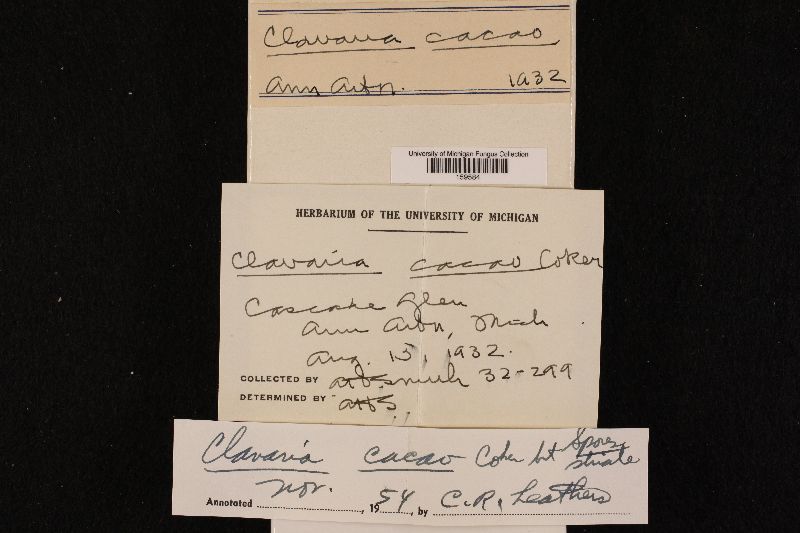 Clavaria cacao
Ann Arbor. 1932
University of Michigan Fungus Collection
159584
HERBARIUM OF THE UNIVERSITY OF MICHIGAN
Clavaria cacao Coker
Cascade Glen
Ann Arbor, Mich.
Aug. 15, 1932.
COLLECTED BY AHSmith 32-299
DETERMINED BY AHS
Clavaria cacao Coker but Spores striate
Nov.
Annotated , 1954, by C.R. Leathers